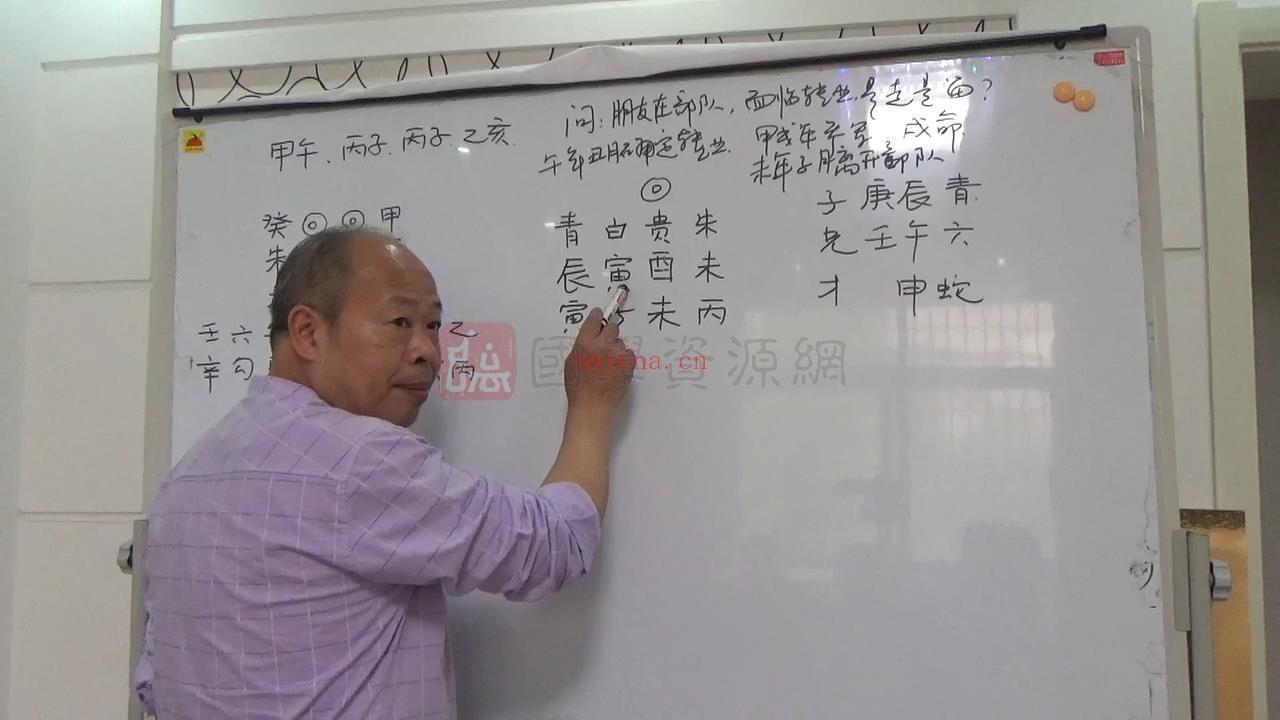 问:朋友在部队,面临转业,是走是留?
甲午、丙子、丙子、乙亥.
午年丑月确定转业.
未年子月离开部队
癸 ◎ ◎ 甲
朱
◎
青 白 贵 朱
辰 寅 酉 未
寅 未 丙
子 庚 辰 青
兄 壬 午 六
才 申 蛇
壬 六 乙
辛 勾 丙
國學資源網
nayona.cn